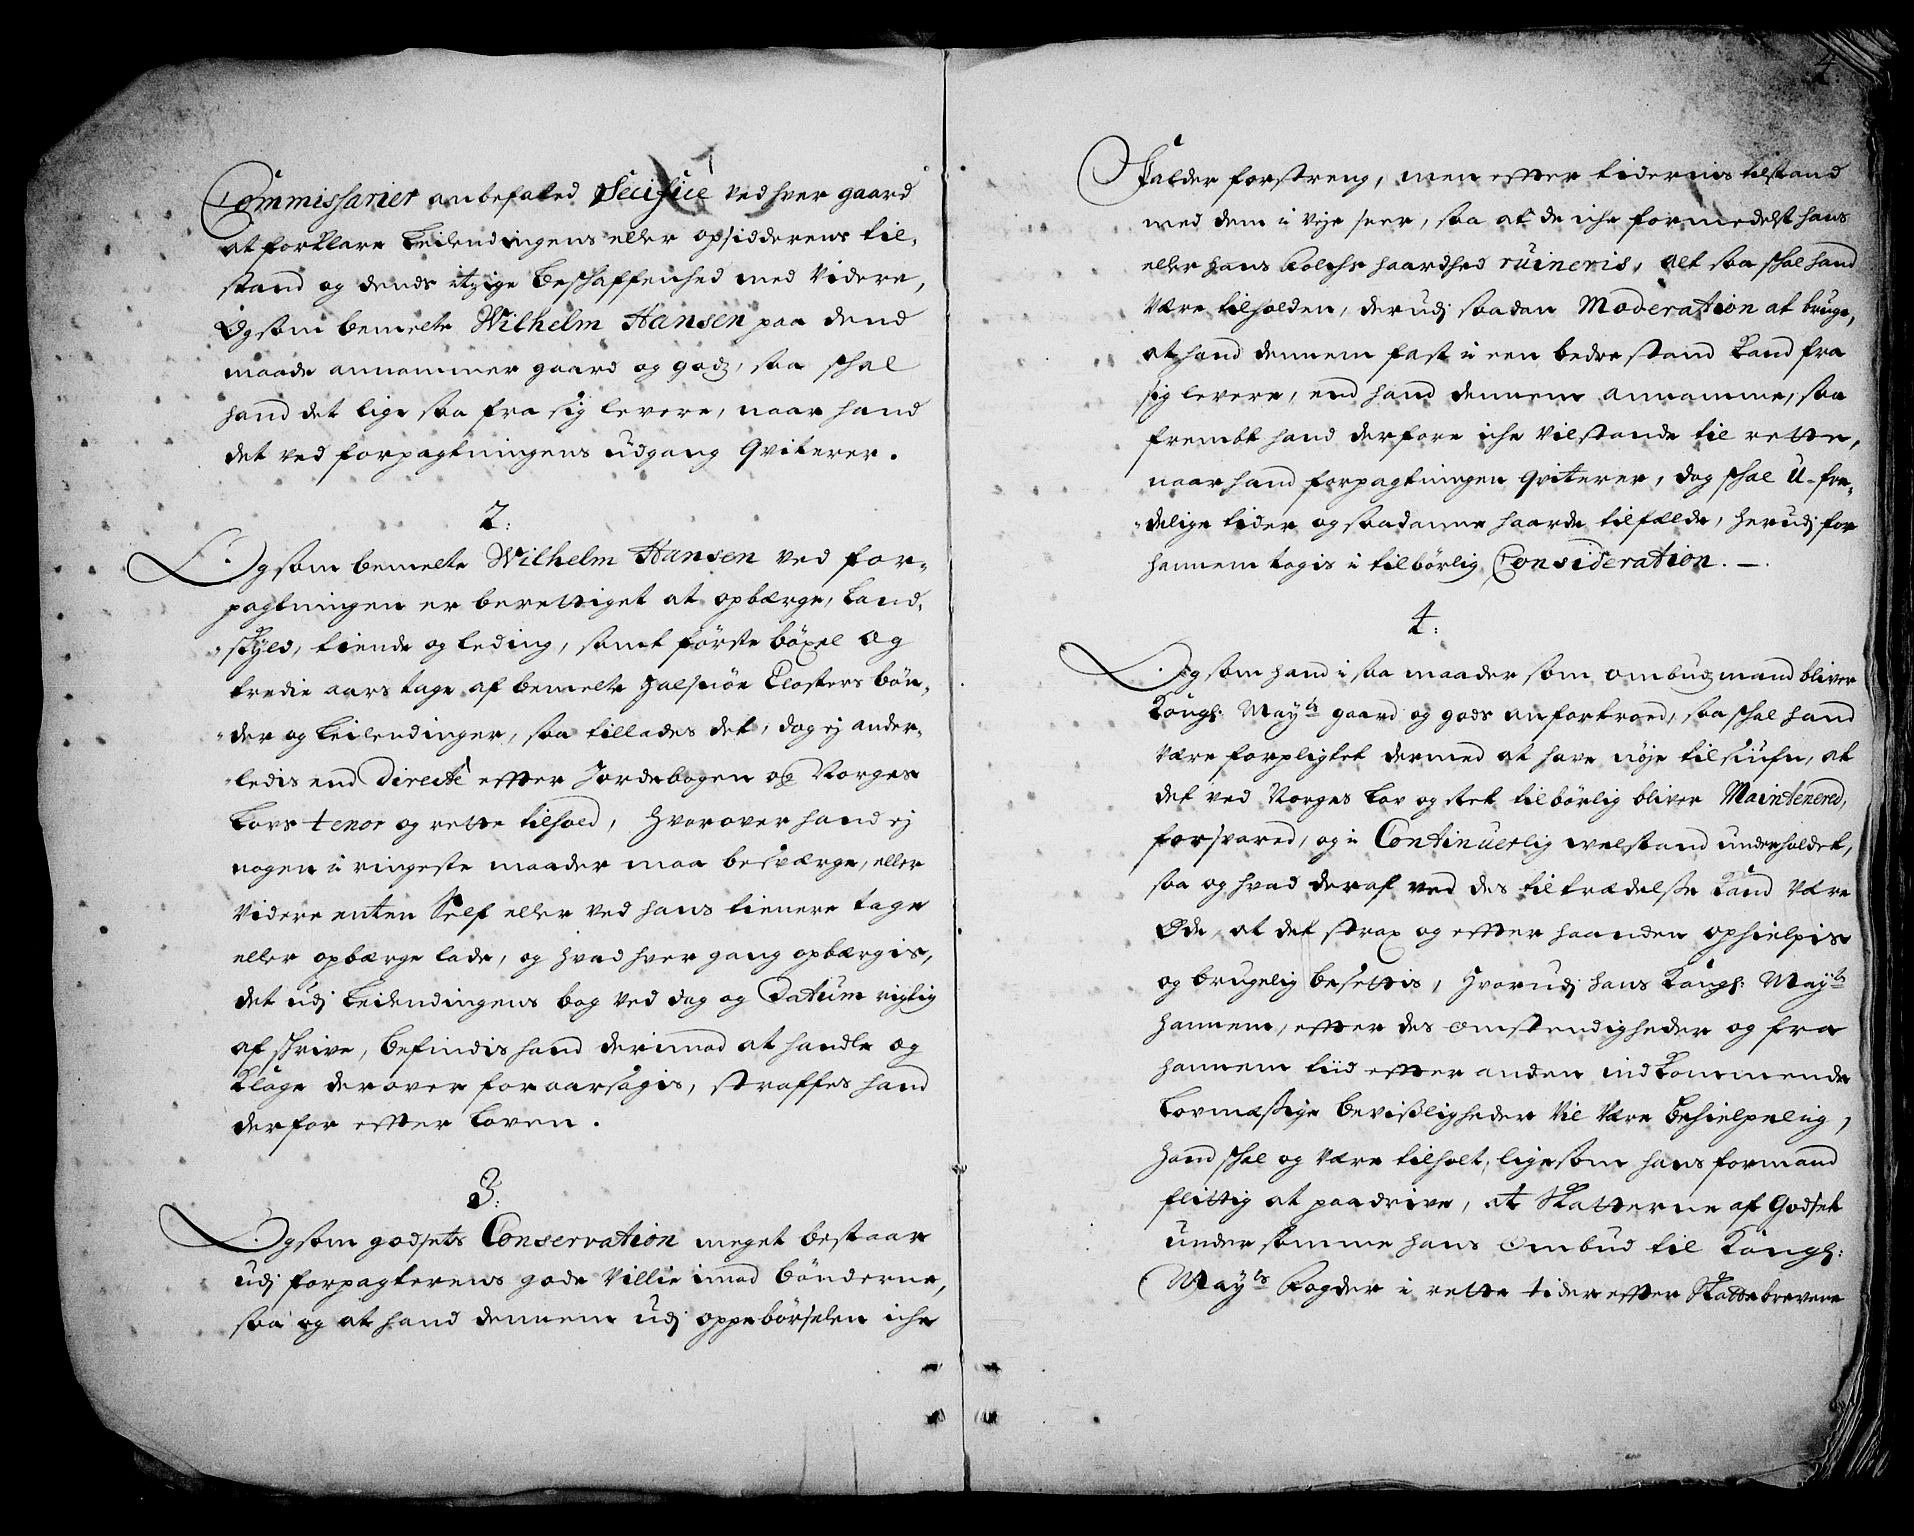 Commissarier anbefaled Specifice ved hver gaard
at forklare Leilendingens eller opsidderens til-
stand og dends itzige beschaffenhed med videre,
Og som bemelte Wilhelm Hansen paa dend
maade annammer gaard og godz, saa schal
hand det lige saa fra sig levere, naar hand
det ved forpagtningens udgang qviterer.
2:
Og som bemelte Wilhelm Hansen ved for-
pagtningen er berettiget at opbærge, Land-
skyld, tiende og leding, samt første böxel og
tredie aars tage af bemelte Halsnöe Closters bön-
der og Leilendinger, saa tillades det, dog ej ander-
ledis end directe effter Jordebogen og Norges
Lovs tenor og rette tilhold, hvorover hand ej
nogen i ringeste maader maa besværge, eller
videre enten Self eller ved hans tienere tage
eller opbærge lade, og hvad hver gang opbærgis,
det udj Leilendingens bog ved dag og Datum rigtig
afskrive, befindis hand derimod at handle og
Klage derover foraarsagis, straffes hand
derfor effter Loven.
3:
Og som godsets Conservation meget bestaar
udj forpagterens gode Villie imod bönderne,
saa og at hand dennem udj oppebörselen iche
4
Falder forstreng, men effter tidernis tilstand
med dem i Vije seer, saa at de iche formedelst hans
eller hans Folchs haardhed ruineris, alt saa schal hand
Være tilholden, derudj saadan Moderation at bruge,
at hand dennem fast i een bedre stand Kand fra
sig levere, end hand dennem annamme, saa
frembt hand derfore iche Vil stande til rette,
naar hand forpagtningen qviterer, dog schal U-fre-
delige tider og saadanne haarde tilfælde, herudj for
hannem tagis i tilbörlig Consideration.
4:
Og som hand i saa maader som ombudzmand bliver
Kongl: Mayts gaard og gods anfortroed, saa schal hand
Være forpligtet dermed at have nöje tilsiufn, at
det ved Norges Lov og Ret tilbörlig bliver Maintenered,
forsvared, og i Continuerlig velstand underholdet,
saa og hvad deraf ved des tiltrædelse Kand Være
Öde, at det strax og effter haanden ophielpis
og brugelig besettis, Hvorudj hans Kongl: Mayts
hannem, effter des omstendigheder og fra
hannem tiid effter anden indkommende
Lovmæssige bevisligheder Vil Være behielpelig,
Hand schal og Være tilholt, ligesom hans formand
flittig at paadrive, at Skatterne af Godset
under samme hans Ombud til Kongl:
Mayts Fogder i rette tider effter Skattebrevene